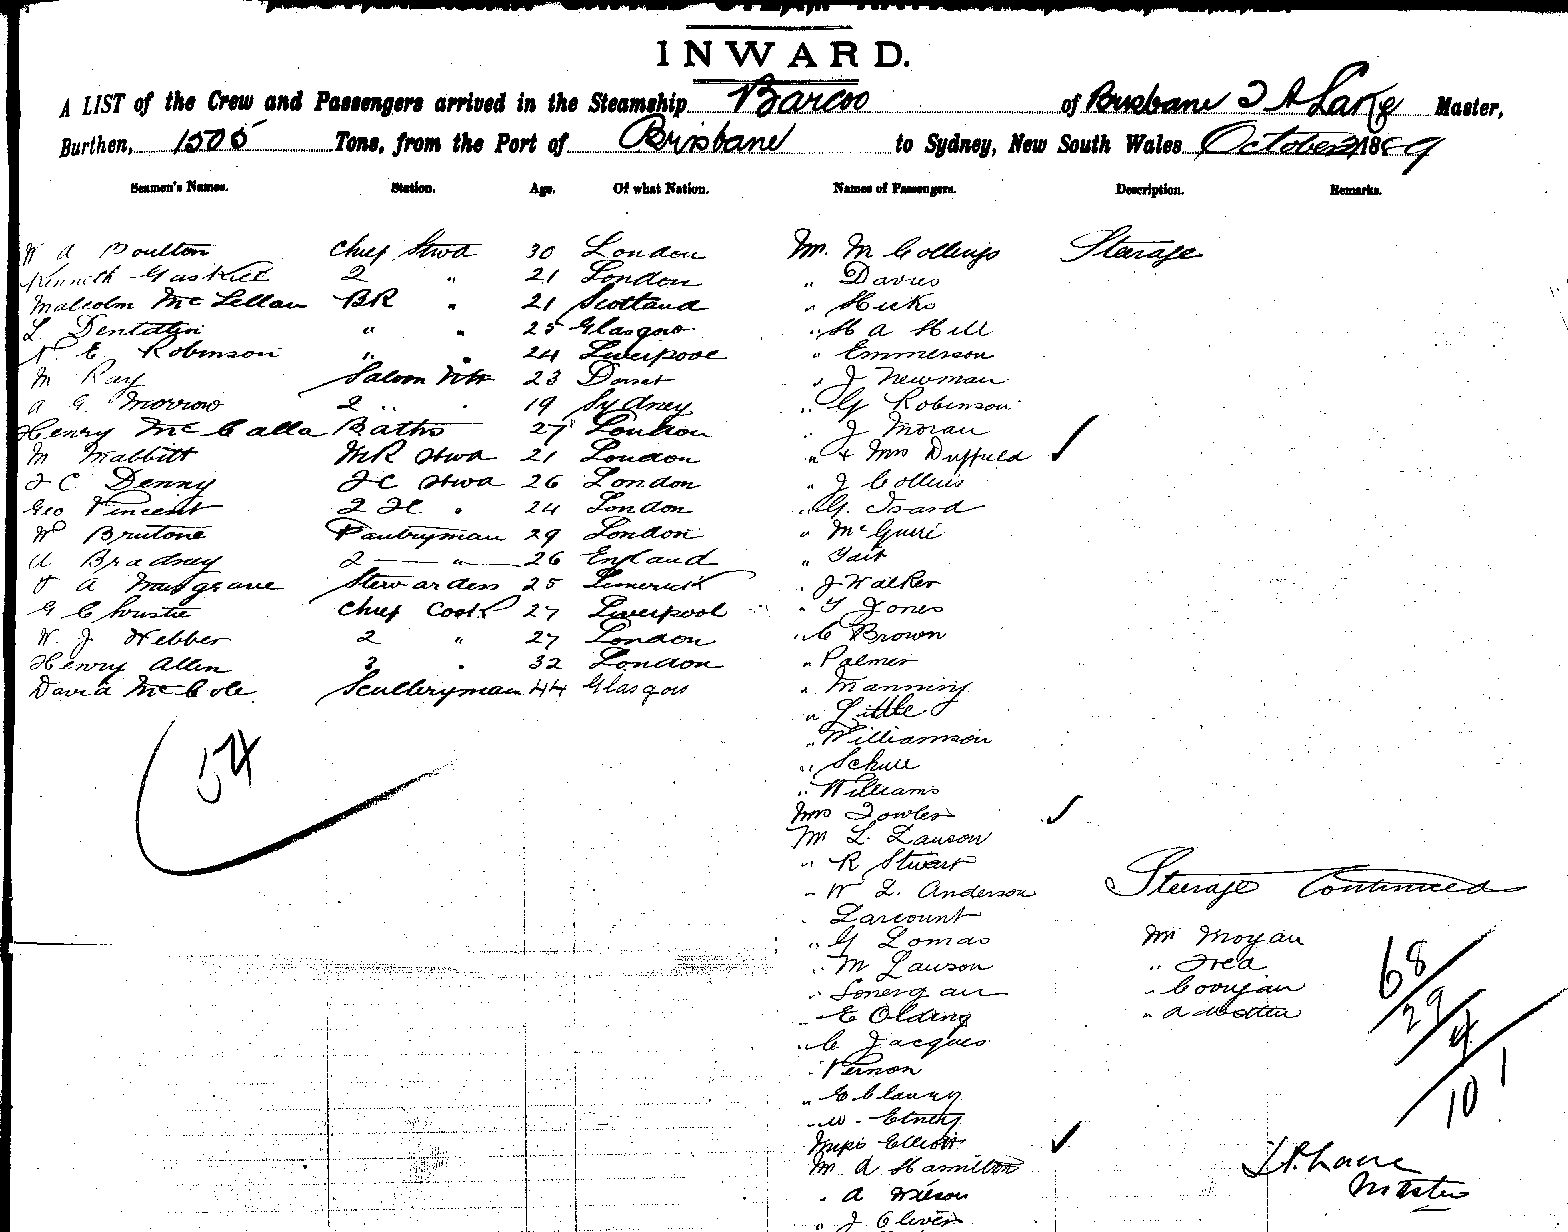 INWARD.
A LIST of the Crew and Passengers arrived in the Steamship Barcoo of Brisbane Lake Master,
Burthen, 1505 Tons, from the Port of Brisbane to Sydney, New South Wales October 1889
Seamen's Names. Station. Age. Of what Nation. Names of Passengers. Description. Remarks.
W A Boulton Chief Stwd 30 London Mr. M Collings Steerage
Kenneth Gasklet 2 " 21 London " Davies
Malcolm McLellan BR " 21 Scotland " Hicks
L " " 25 Glasgow " H A Hill
E Robinson " " 24 Liverpool " Emmerson
M Ray Saloon 23 Dorset " J Newman
A G. Morrow 2 " " 19 Sydney " G Robinson
Henry McCalla Baths 27 London " J Moran
M Mabbitt MR Stwd 21 London " & Mrs Duffield
Denny Stwd 26 London " J Collins
Geo Vincent 2 " 24 London " G. Isard
W Brutone Pantryman 29 London " McGuire
A Bradney 2 " 26 England " Tait
A Musgrave Stewardess 25 Limerick " J Walker
G Christie Chief Cook 27 Liverpool " T Jones
W. J. Webber 2 " 27 London " C Brown
Henry Allen 3 " 32 London " Palmer
David McCole Sculleryman 44 Glasgow " Manning
" Little
54 " Williamson
" Schull
" Williams
Mrs Fowler
Mr L. Lawson
" R Stuart
" W L. Anderson Steerage Continued
" Larcount
" G Lomas Mr Moyan
" M Lawson "
" Lonergan " 68
" E Olding " A 29
" C Jacques 4
" Vernon
" E Clancy 101
" W. Etney
Miss Elliott
Mr A Hamilton
" A Wilson Master
" J Oliver